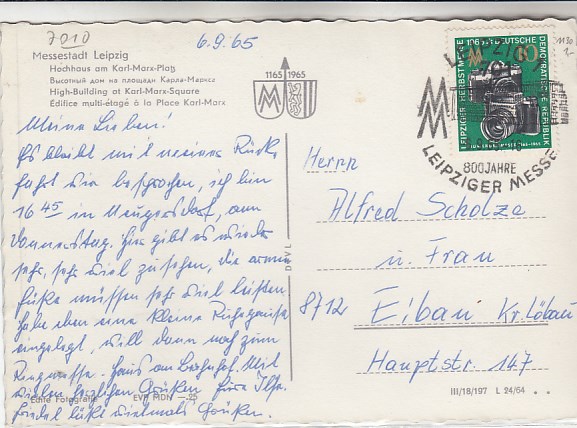 7010
6.9.65
Messestadt Leipzig
Hochhaus am Karl-Marx-Platz
Высотный дом на площади Карла-Маркса
High-Building at Karl-Marx-Square
Édifice multi-étagé à la Place Karl-Marx
1165 1965
MM
Meine Lieben!
Es bleibt mit meiner Rück-
fahrt wie besprochen, ich bin
16 45 in am
Donnerstag. Hier gibt es wieder
sehr, sehr viel zu sehen, die armen
Füße müssen sehr viel leisten
habe eben eine kleine Ruhepause
eingelegt, will dann noch zum
Haus am Bahnhof. Mit
vielen herzlichen Grüßen Eure Ilse.
Friedel läßt vielmals Grüßen.
Echte Fotografie EVP MDN -.25
DPVL
LEIPZIGER HERBSTMESSE
DEUTSCHE
DEMOKRATISCHE REPUBLIK
800 JAHRE
LEIPZIGER MESSE
Herrn
Alfred Scholze
u. Frau
8712 Eibau Kr. Löbau
Hauptstr. 147
III/18/197 L 24/64